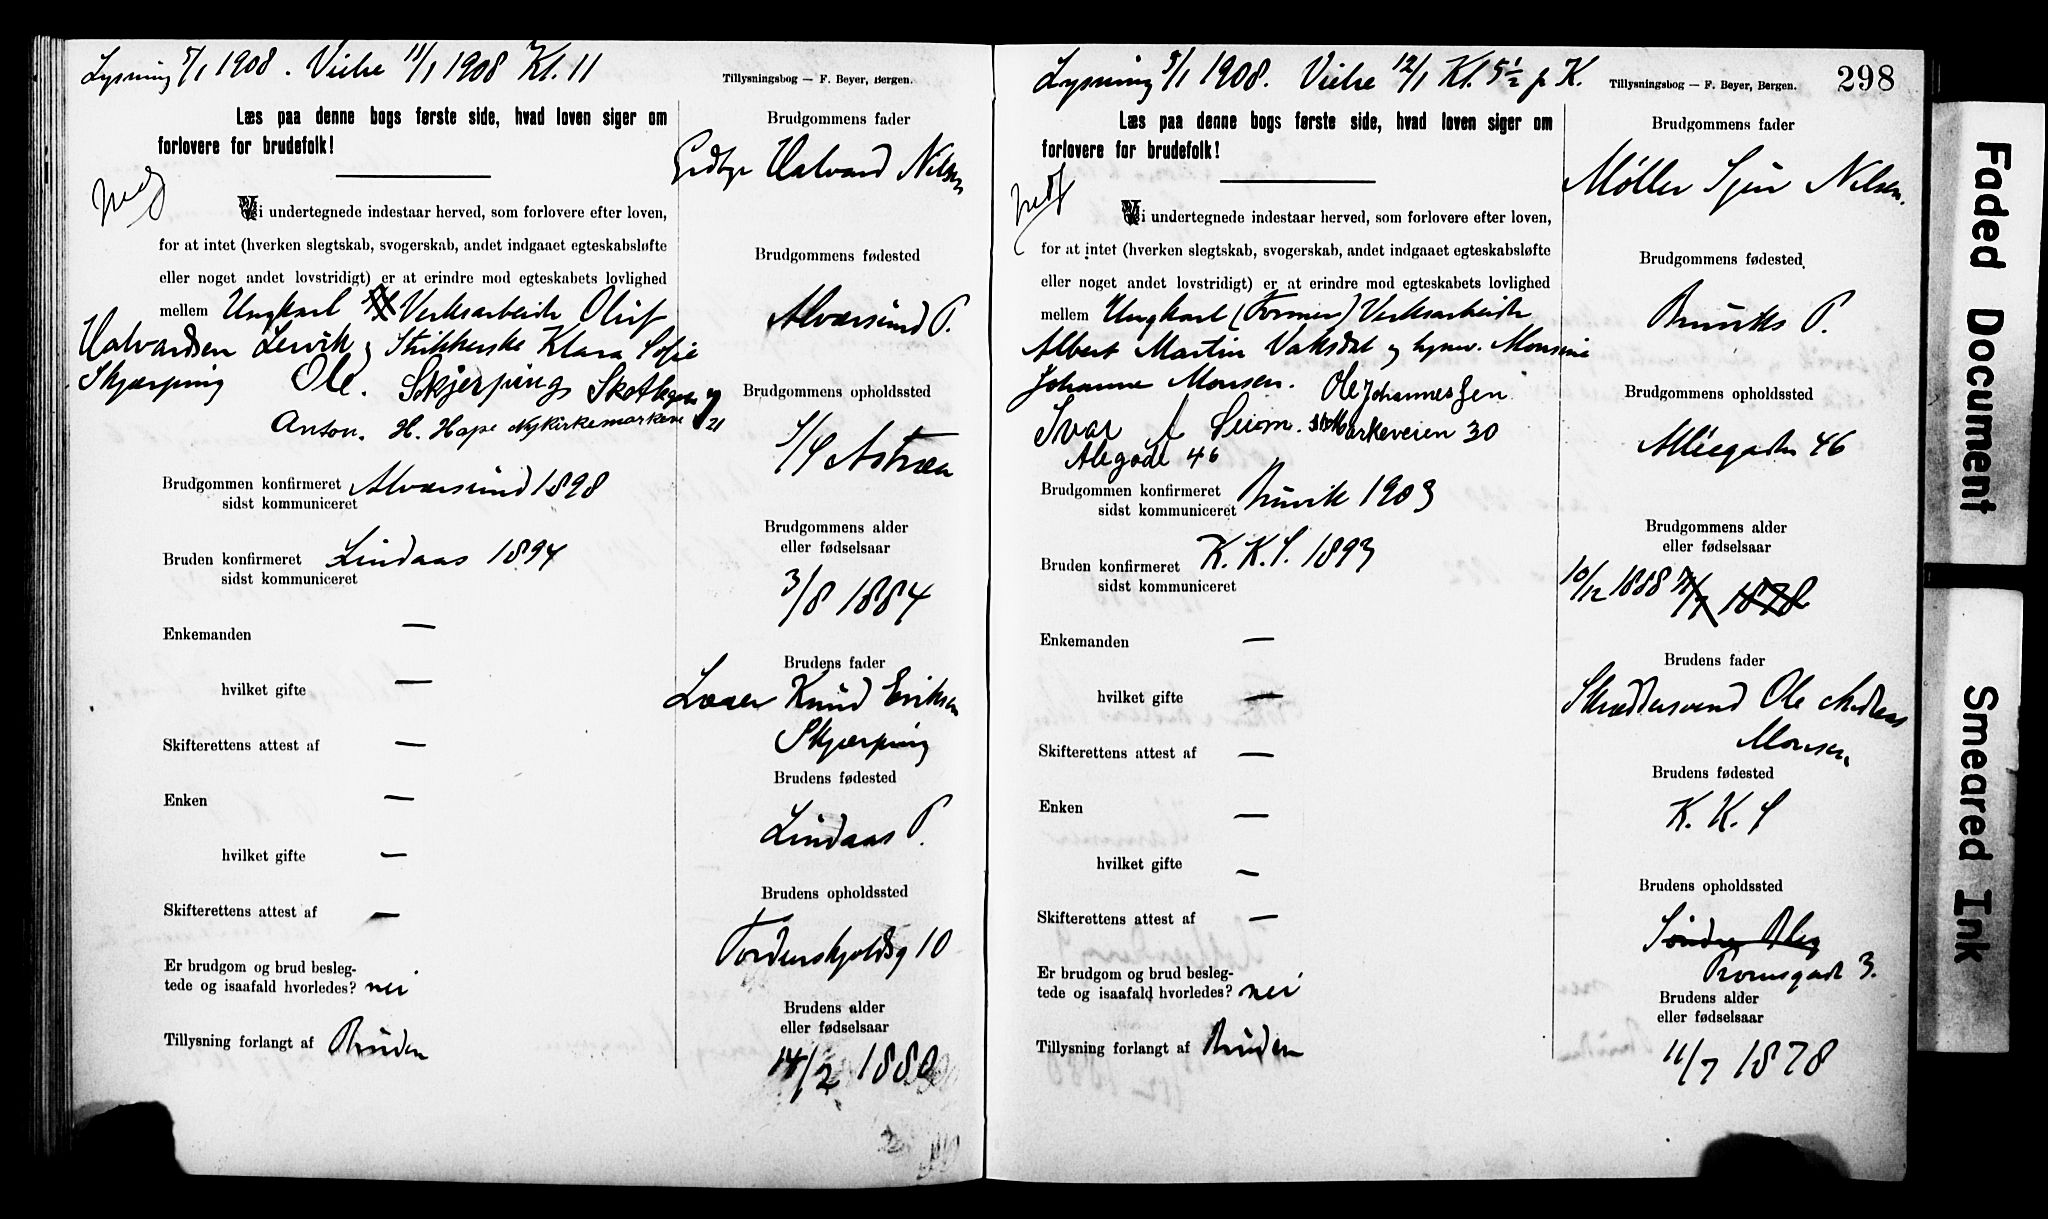 Lysning 5/1 1908. Vielse 11/1 1908 Kl. 11
Tillysningsbog — F. Beyer, Bergen.
Læs paa denne bogs første side, hvad loven siger om
forlovere for brudefolk!
Vi undertegnede indestaar herved, som forlovere efter loven,
for at intet (hverken slegtskab, svogerskab, andet indgaaet egteskabsløfte
eller noget andet lovstridigt) er at erindre mod egteskabets lovlighed
mellem Ungkarl Verksarbeider Oluf
Halvardsen Lervik og Strikkerske Klara Sofie
Skjærping Ole. Skjerping
Anton. H. Hope Nykirkemarkene 21
Brudgommen konfirmeret Alværsund 1898
sidst kommuniceret
Bruden konfirmeret Lindaas 1894
sidst kommuniceret
Enkemanden —
hvilket gifte —
Skifterettens attest af —
Enken —
hvilket gifte —
Skifterettens attest af —
Er brudgom og brud besleg-
tede og isaafald hvorledes? nei
Tillysning forlangt af Bruden
Brudgommens fader
Halvard Nilsen
Brudgommens fødested
Alværsund P.
Brudgommens opholdssted
S/S Astræa
Brudgommens alder
eller fødselsaar
3/8 1884
Brudens fader
Knud Eriksen
Skjærping
Brudens fødested
Lindaas P.
Brudens opholdssted
Tordenskjoldsg 10
Brudens alder
eller fødselsaar
14/2 1880
Lysning 5/1 1908. Vielse 12/1 Kl. 5½ p K.
Tillysningsbog — F. Beyer, Bergen.
298
Læs paa denne bogs første side, hvad loven siger om
forlovere for brudefolk!
Vi undertegnede indestaar herved, som forlovere efter loven,
for at intet (hverken slegtskab, svogerskab, andet indgaaet egteskabsløfte
eller noget andet lovstridigt) er at erindre mod egteskabets lovlighed
mellem Ungkarl (Former) Verksarbeider
Albert Martin Vaksdal og Monsine
Johanne Monsen. Ole Johannessen
Ivar A Seim. Markeveien 30
Alegade 46
Brudgommen konfirmeret Bruvik 1903
sidst kommuniceret
Bruden konfirmeret K. K. S. 1893
sidst kommuniceret
Enkemanden —
hvilket gifte —
Skifterettens attest af —
Enken —
hvilket gifte —
Skifterettens attest af —
Er brudgom og brud besleg-
tede og isaafald hvorledes? nei
Tillysning forlangt af Bruden
Brudgommens fader
Møller Sjur Nilsen.
Brudgommens fødested
Bruviks P.
Brudgommens opholdssted
Alléegaden 46
Brudgommens alder
eller fødselsaar
10/12 1888 11/7 1878
Brudens fader
Skræddersvend Ole Andreas
Monsen
Brudens fødested
K. K. S
Brudens opholdssted
3.
Brudens alder
eller fødselsaar
11/7 1878
Faded Document
Smeared Ink